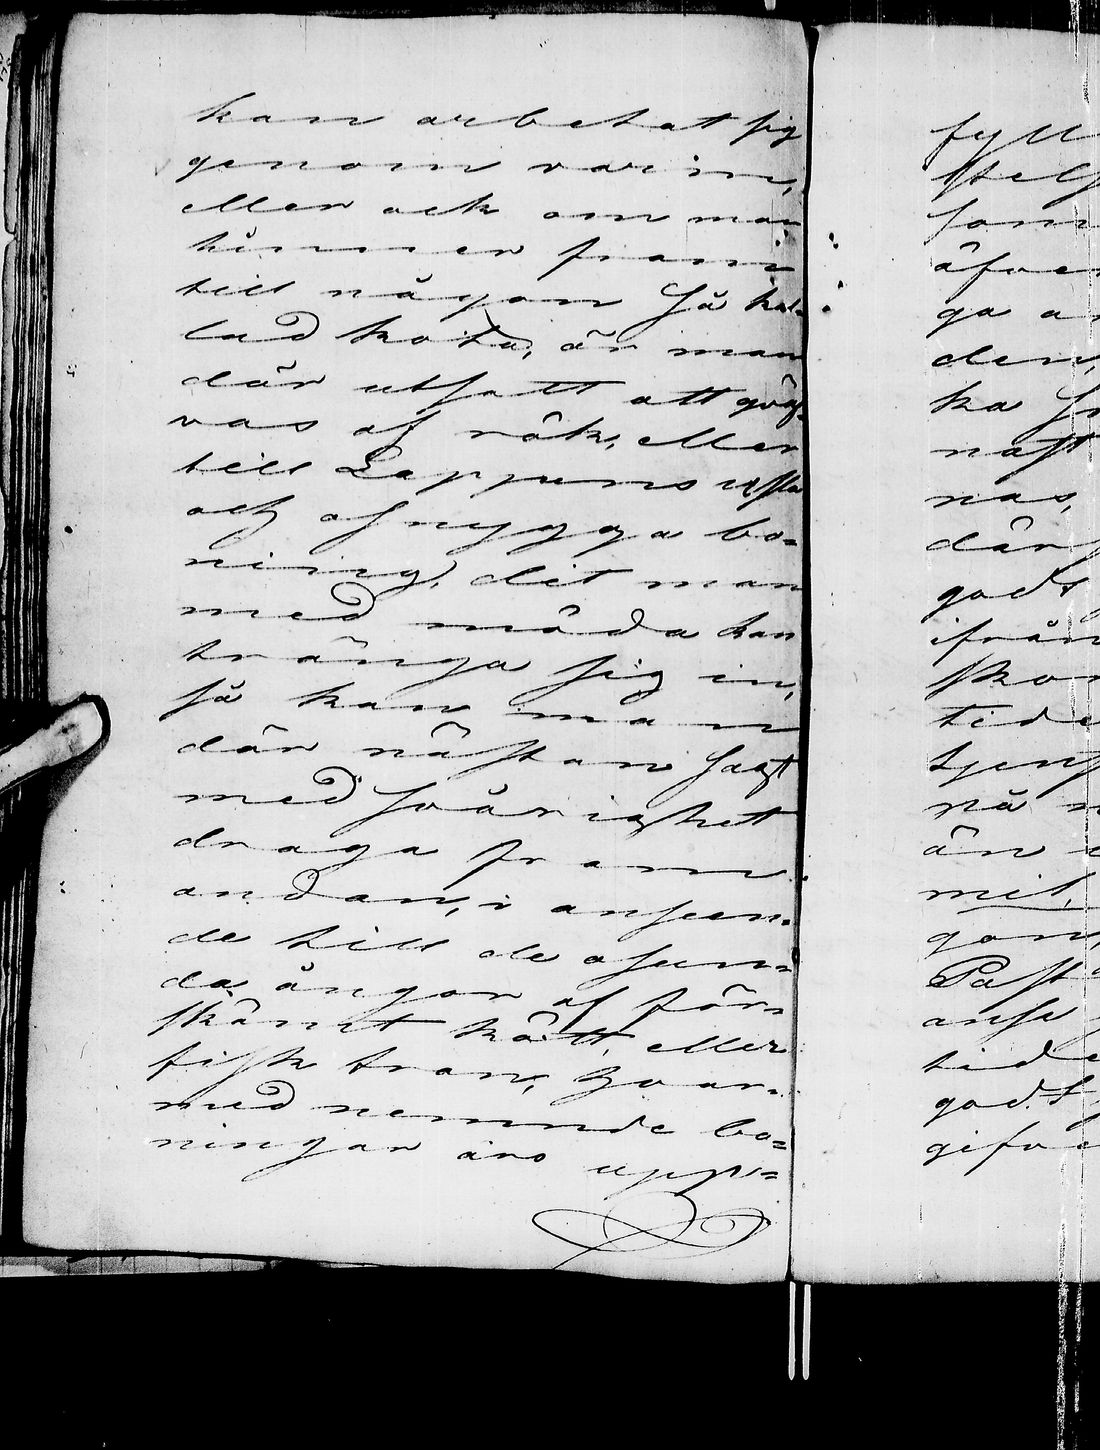 kan arbetat sig
genom varin,
eller ock om man
hinner fram
till någon så kal-
lad kota, är man
där utsatt att qväf-
vas af rök, eller
till Lappens usla
och osnygga bo=
ning, dit man
med möda kan
tränga sig in,
så kan man
där nästan sagt
med svårighet
draga fram
andan, i anseen-
de till de osun=
da ångor af för-
skämt kött, eller
fisk tran, hvar-
med nemnde bo=
ningar äro upp=
fyll
som
äfven
ga
den,
ka
nast
nas,
där
godt
ifrån
tide
på
än
mil,
Past
anse
tid
godt